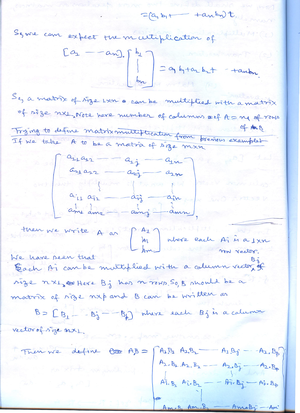 =(a₁b₁+ +anbn)t.
So, we can expect the multiplication of
[a₁ --- an]. [b₁ | bn] = a₁b₁+a₂b₂+ +anbn
So, a matrix of size 1xn can be multiplied with a matrix
of size nx1. Note here number of columns of A = no. of rows
of B
Trying to define matrix multiplication from previous examples
If we take A to be a matrix of size mxn
a₁₁ a₁₂ --- a₁j --- a₁n
a₂₁ a₂₂ --- a₂j --- a₂n
ai₁ ai₂ --- aij --- ain
am₁ am₂ --- amj --- amn
then we write A as [A₁ | Ai | Am] where each Ai is a 1xn
row vector.
We have seen that
Each Ai can be multiplied with a column vector Bj of
size nx1. Here Bj has n rows So, B should be a
matrix of size nxp and B can be written as
B = [B₁ --- Bj --- Bp] where each Bj is a column
vector of size nx1.
Then we define AB = A₁.B₁ A₁.B₂ --- A₁.Bj --- A₁.Bp
A₂.B₁ A₂.B₂ --- A₂.Bj --- A₂.Bp
Ai.B₁ Ai.B₂ --- Ai.Bj --- Ai.Bp
Am.B₁ Am.B₂ --- Am.Bj --- Am.Bp